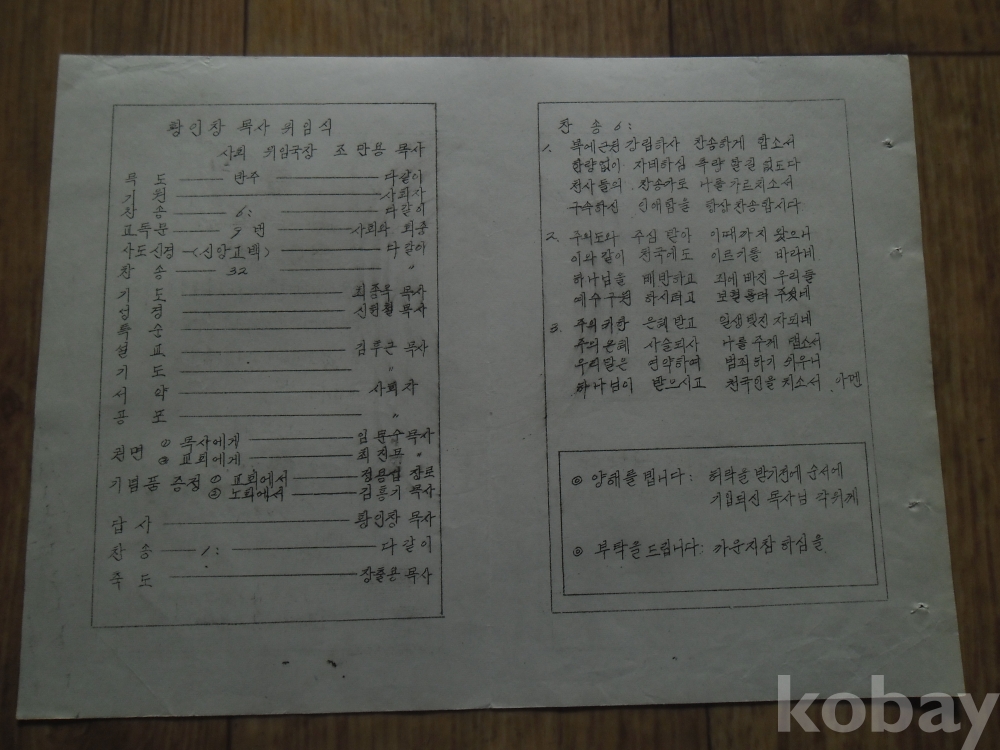 황인창 목사 위임식
사회 위임국장 조만용 목사
묵도 반주 다같이
기원 사회자
찬송 6: 다같이
교독문 9번 사회와 회중
사도신경 (신앙고백) 다같이
찬송 32 〃
기도 최종옥 목사
성경 신현철 목사
특순
설교 목사
기도 〃
서약 사회자
공포 〃
권면 ① 목사에게 임문수 목사
② 교회에게 최진무 〃
기념품 증정 ① 교회에서 정용섭 장로
② 노회에서 김흥기 목사
답사 황인창 목사
찬송 1: 다같이
축도 목사
찬송 6:
1. 복에근원 강림하사 찬송하게 합소서
한량없이 자비하심 측량 할길 없도다
천사들의 찬송가로 나를가르치소서
구속하신 인애함을 항상찬송합시다
2. 주의도와 주심 받아 이때까지 왔으니
이와같이 천국에도 이르기를 바라네
하나님을 배반하고 죄에 빠진 우리들
예수 구원 하시려고 보혈흘려 주셨네
3. 주의귀한 은혜받고 일생빚진 자되네
주의은혜 사슬되사 나를주께 맵소서
우리맘은 연약하여 범죄하기 쉬우니
하나님이 받으시고 천국인을 치소서 아멘
◎ 양해를 빕니다: 허락을 받기전에 순서에
기입되신 목사님 각위께
◎ 부탁을드립니다: 까운지참 하심을
kobay